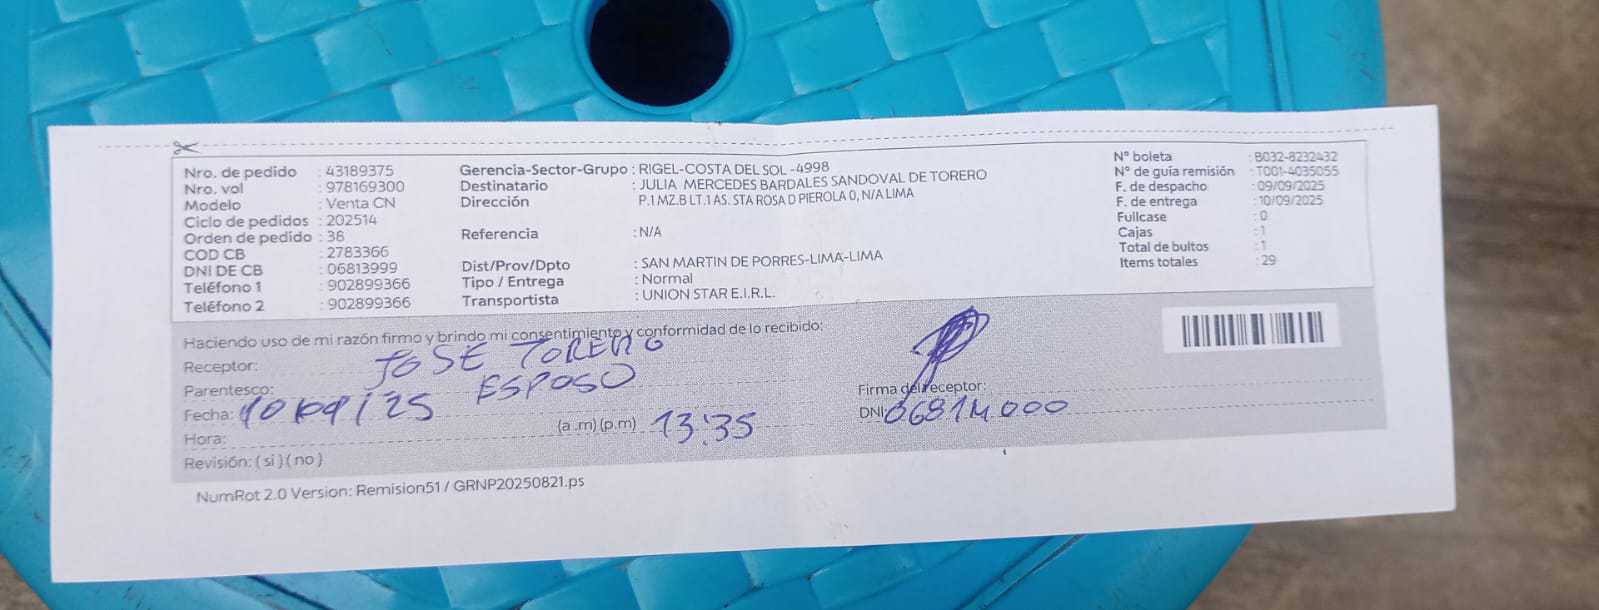 Nro. de pedido : 43189375
Nro. vol : 978169300
Modelo : Venta CN
Ciclo de pedidos : 202514
Orden de pedido : 38
COD CB : 2783366
DNI DE CB : 06813999
Teléfono 1 : 902899366
Teléfono 2 : 902899366
Gerencia-Sector-Grupo : RIGEL-COSTA DEL SOL -4998
Destinatario : JULIA MERCEDES BARDALES SANDOVAL DE TORERO
Dirección P.1 MZ.B LT.1 AS. STA ROSA D PIEROLA 0, N/A LIMA
Referencia : N/A
Dist/Prov/Dpto : SAN MARTIN DE PORRES-LIMA-LIMA
Tipo / Entrega : Normal
Transportista : UNION STAR E.I.R.L.
N° boleta : B032-8232432
N° de guía remisión : T001-4035055
F. de despacho : 09/09/2025
F. de entrega : 10/09/2025
Fullcase : 0
Cajas : 1
Total de bultos : 1
Items totales : 29
Haciendo uso de mi razón firmo y brindo mi consentimiento y conformidad de lo recibido:
Receptor: JOSE TORERO
Parentesco: ESPOSO
Firma del receptor:
Fecha: 10/09/25
DNI: 06814000
Hora: (a .m) (p.m) 13:35
Revisión: ( si ) ( no )
NumRot 2.0 Version: Remision51 / GRNP20250821.ps